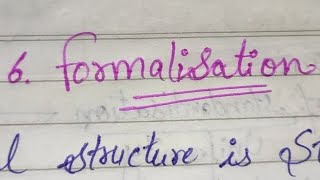 6. formalisation
l structure is